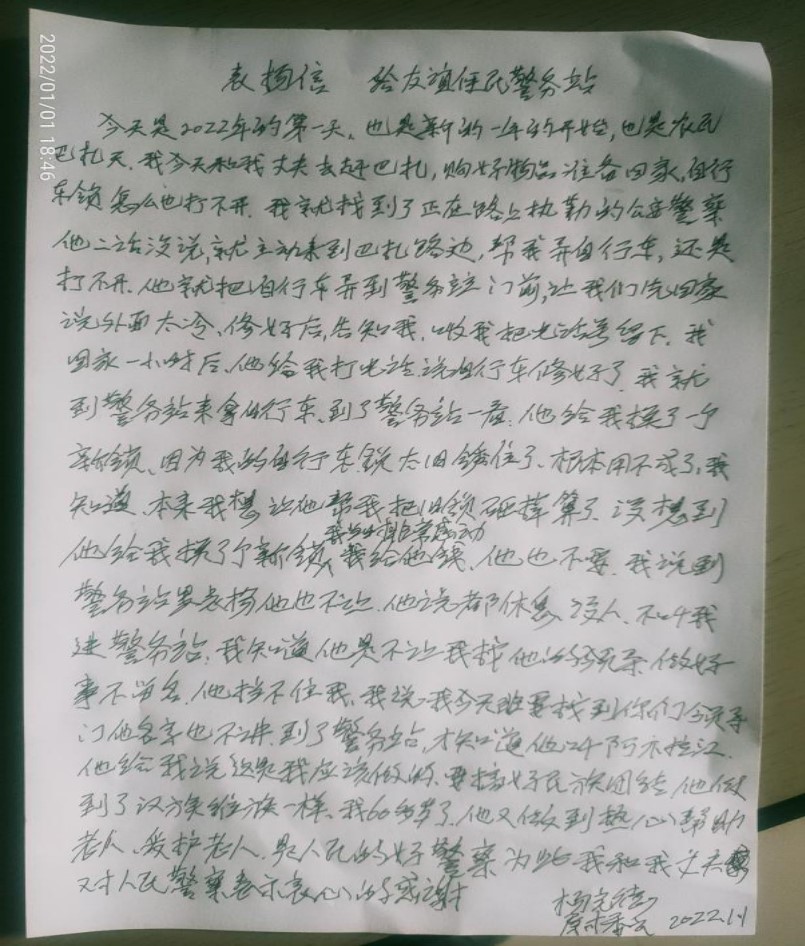 2022/01/01 18:46
表扬信 给友谊便民警务站
今天是2022年的第一天,也是新的一年的开始,也是农民
巴扎天,我今天和我丈夫去赶巴扎,购好物品准备回家,自行
车锁怎么也打不开.我就找到了正在路上执勤的公安警察
他二话没说,就主动来到巴扎路边,帮我弄自行车,还是
打不开.他就把自行车弄到警务站门前,让我们先回家
说外面太冷、修好后,告知我.叫我把电话号留下.我
回家一小时后、他给我打电话说自行车修好了.我就
到警务站来拿自行车、到了警务站一看.他给我换了一个
新锁、因为我的自行车锁太旧锈住了、根本用不成了,我
知道、本来我想让他帮我把旧锁砸掉算了.没想到
我当时非常感动
他给我换了个新锁,我给他钱、他也不要.我说到
警务站里表扬他也不让.他说都休息没人.不叫我
进警务站,我知道他是不让我找他的领导.做好
事不留名.他挡不住我.我说我今天非要找到你们领导
门他名字也不讲.到了警务站,才知道他叫阿不拉江.
他给我说这是我应该做的、要搞好民族团结,他做
到了汉族维族一样、我60多岁了.他又做到热心帮助
老人、爱护老人.是人民的好警察为此我和我丈夫
对人民警察表示衷心的感谢
杨
2022.1.1